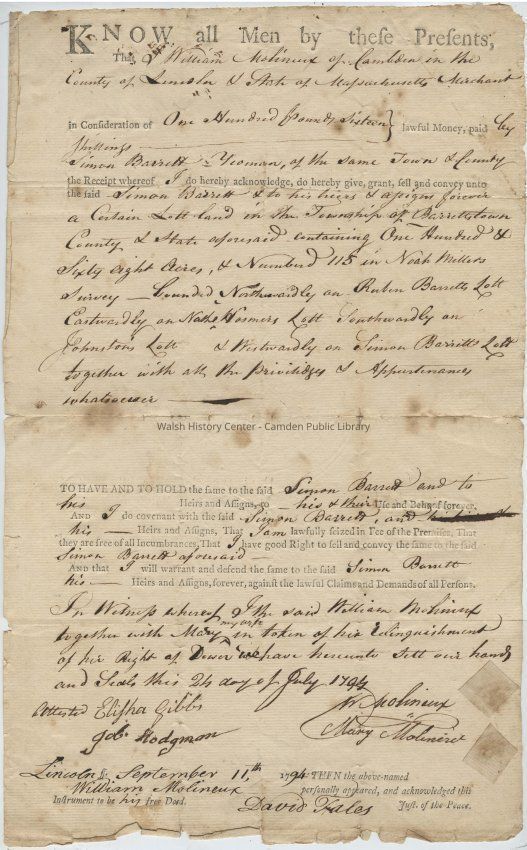 KNOW all Men by these Presents,
That I William Molineux of Cambden in the
County of Lincoln & State of Massachusetts Merchant
in Consideration of One Hundred Pounds Sixteen } lawful Money, paid by
Shillings
Simon Barrett Yeoman, of the same Town & County
the Receipt whereof I do hereby acknowledge, do hereby give, grant, sell and convey unto
the said Simon Barrett & to his heirs & assigns forever
a Certain Lott land in the Township of Barrettstown
County & State aforesaid containing One Hundred &
Sixty eight Acres, & Numberd 115 in Noah Millers
Survey — bounded Northwardly on Ruben Barretts Lott
Eastwardly on Nathl Hosmers Lott Southwardly on
Johnstons Lott & Westwardly on Simon Barretts Lott
together with all the Priviledges & Appurtenances
whatsoever
Walsh History Center - Camden Public Library
TO HAVE AND TO HOLD the same to the said Simon Barrett and to
his Heirs and Assigns, to his & their Use and Behoof forever.
AND I do covenant with the said Simon Barrett, and
his Heirs and Assigns, That I am lawfully seized in Fee of the Premises, That
they are free of all Incumbrances, That I have good Right to sell and convey the same to the said
Simon Barrett aforesaid
AND that I will warrant and defend the same to the said Simon Barrett
his Heirs and Assigns, forever, against the lawful Claims and Demands of all Persons.
In Witness whereof I the said William Molineux
together with Mary my wife in token of her Relinquishment
of her Right of Dower we have hereunto Sett our hands
and Seals this 24 day of July 1794
Attested Elisha Gibbs
Wm Molineux
Job Hodgman
Mary Molineux
Lincoln ss. September 11th 1794 THEN the above-named
William Molineux personally appeared, and acknowledged this
Instrument to be his free Deed.
David Fales Just. of the Peace.